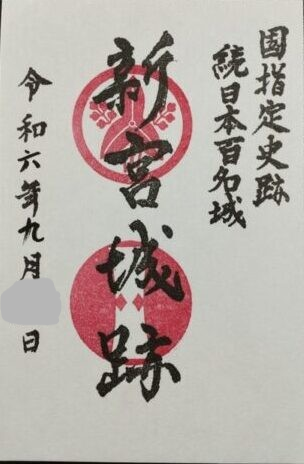 国指定史跡
続日本百名城
新宮城跡
令和六年九月
日